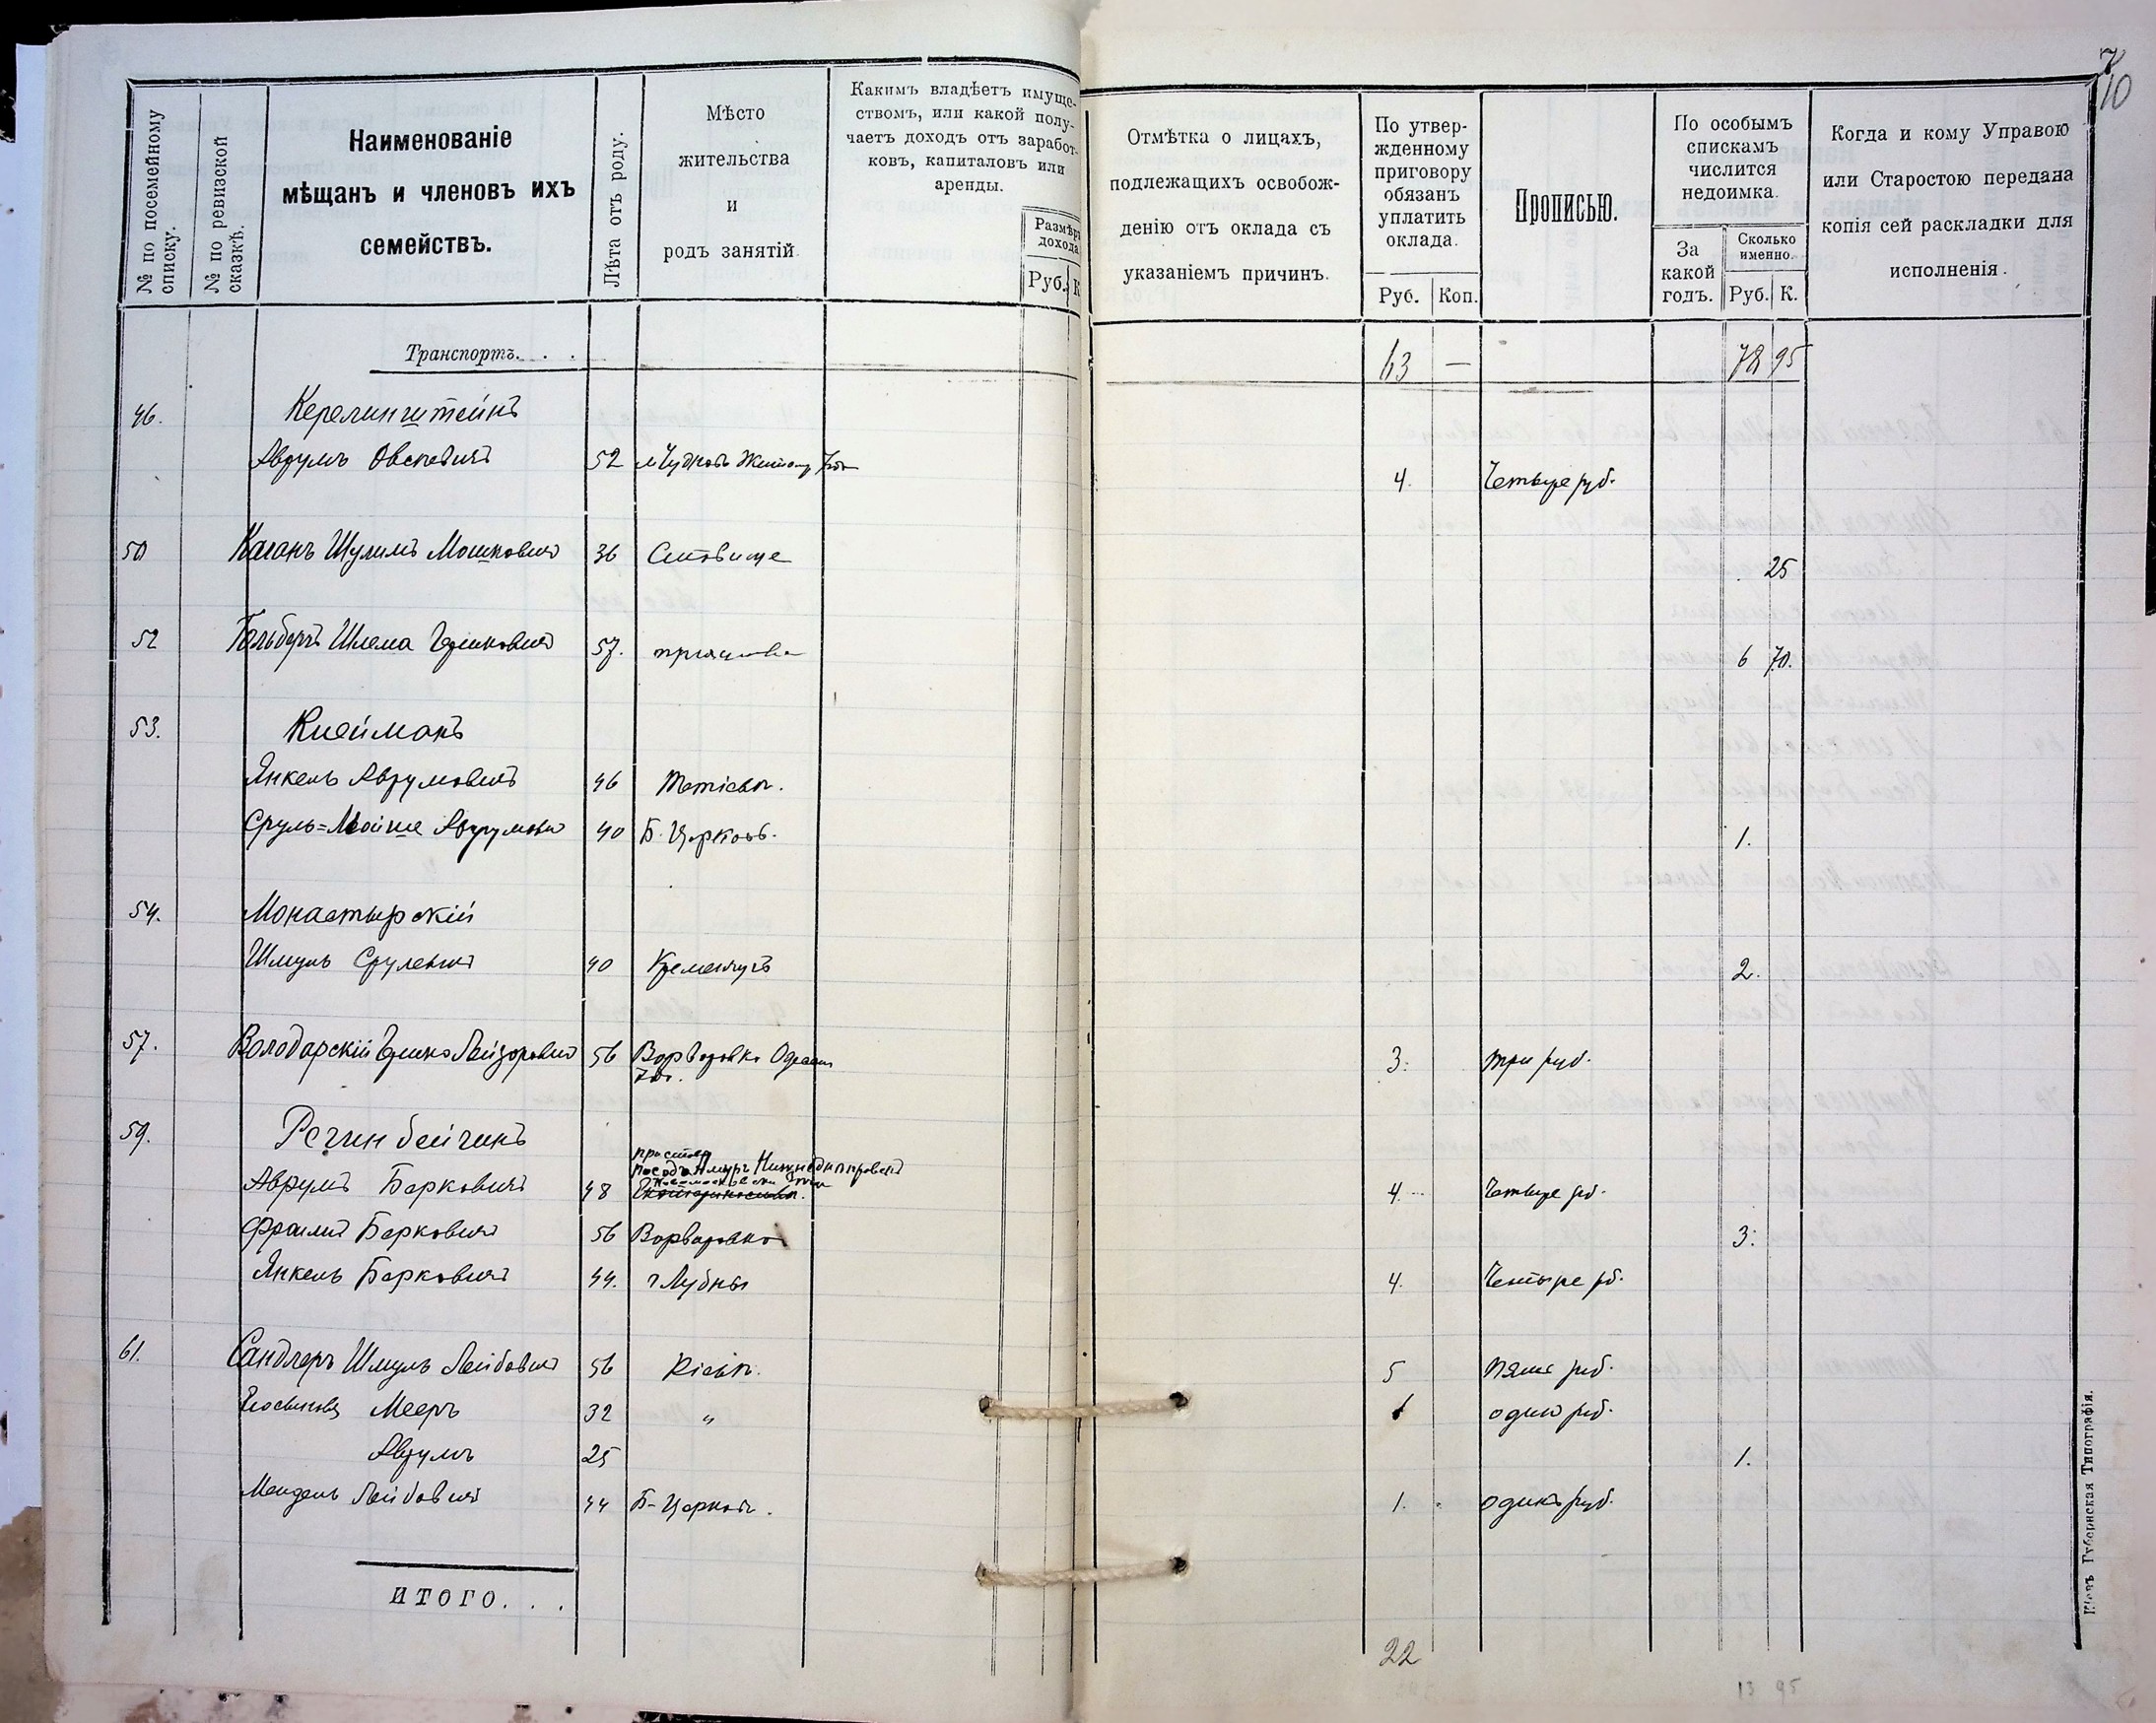 7
10
№ по посемейному списку.
№ по ревизской сказкѣ.
Наименованіе
мѣщанъ и членовъ ихъ
семействъ.
Лѣта отъ роду.
Мѣсто
жительства
и
родъ занятій
Какимъ владѣетъ имуще-
ствомъ, или какой полу-
чаетъ доходъ отъ заработ-
ковъ, капиталовъ или
аренды.
Размѣръ
дохода
Руб. К
Отмѣтка о лицахъ,
подлежащихъ освобож-
денію отъ оклада съ
указаніемъ причинъ.
По утвер-
жденному
приговору
обязанъ
уплатить
оклада.
Руб. Коп.
Прописью.
По особымъ
спискамъ
числится
недоимка.
За
какой
годъ.
Сколько
именно.
Руб. К.
Когда и кому Управою
или Старостою передана
копія сей раскладки для
исполненія.
Транспортъ. . . 63 — 78 95
46. Керелинштейнъ
Аврумъ 52 4. Четыре руб.
50 Каганъ Шулимъ Мошковичъ 36 Ставище 25
52 Гольбергъ Шлема Гершковичъ 57. 6 70.
53. Клейманъ
Янкель Аврумовичъ 46 Тетіевъ.
Сруль=Мойше Аврумовичъ 40 Б. Церковь. 1.
54. Монастырскій
Шмуль Срулевичъ 40 Кременчугъ 2.
57. Володарскій Гершко Лейзоровичъ 56 Варваровка Одесск 3. три руб.
59.
Аврумъ Берковичъ 48 4. Четыре рб.
Фроимъ Берковичъ 56 Варваровка 3.
Янкель Берковичъ 44. г Лубны 4. Четыре рб.
61. Сандлеръ Шмуль Лейбовичъ 56 Кіевъ. 5 пять руб.
Мееръ 32 " 1 один руб.
Аврумъ 25 1.
Мендель Лейбовичъ 44 Б-Церковь. 1. одинъ руб.
ИТОГО. . .
22 13 95
Кіевъ Губернская Типографія.